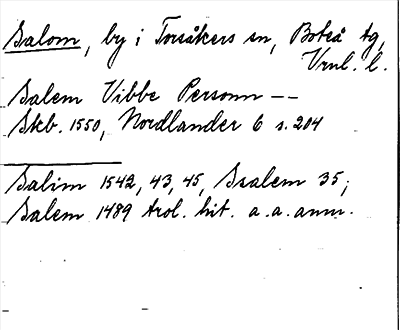 Salom, by i Torsåkers sn, Boteå tg,
Vrnl. l.
Salem Vibbe Personn --
Skb. 1550, Nordlander 6 s. 204
Salim 1542, 43, 45, Ssalem 35;
Salem 1489 trol. hit. a. a. anm.